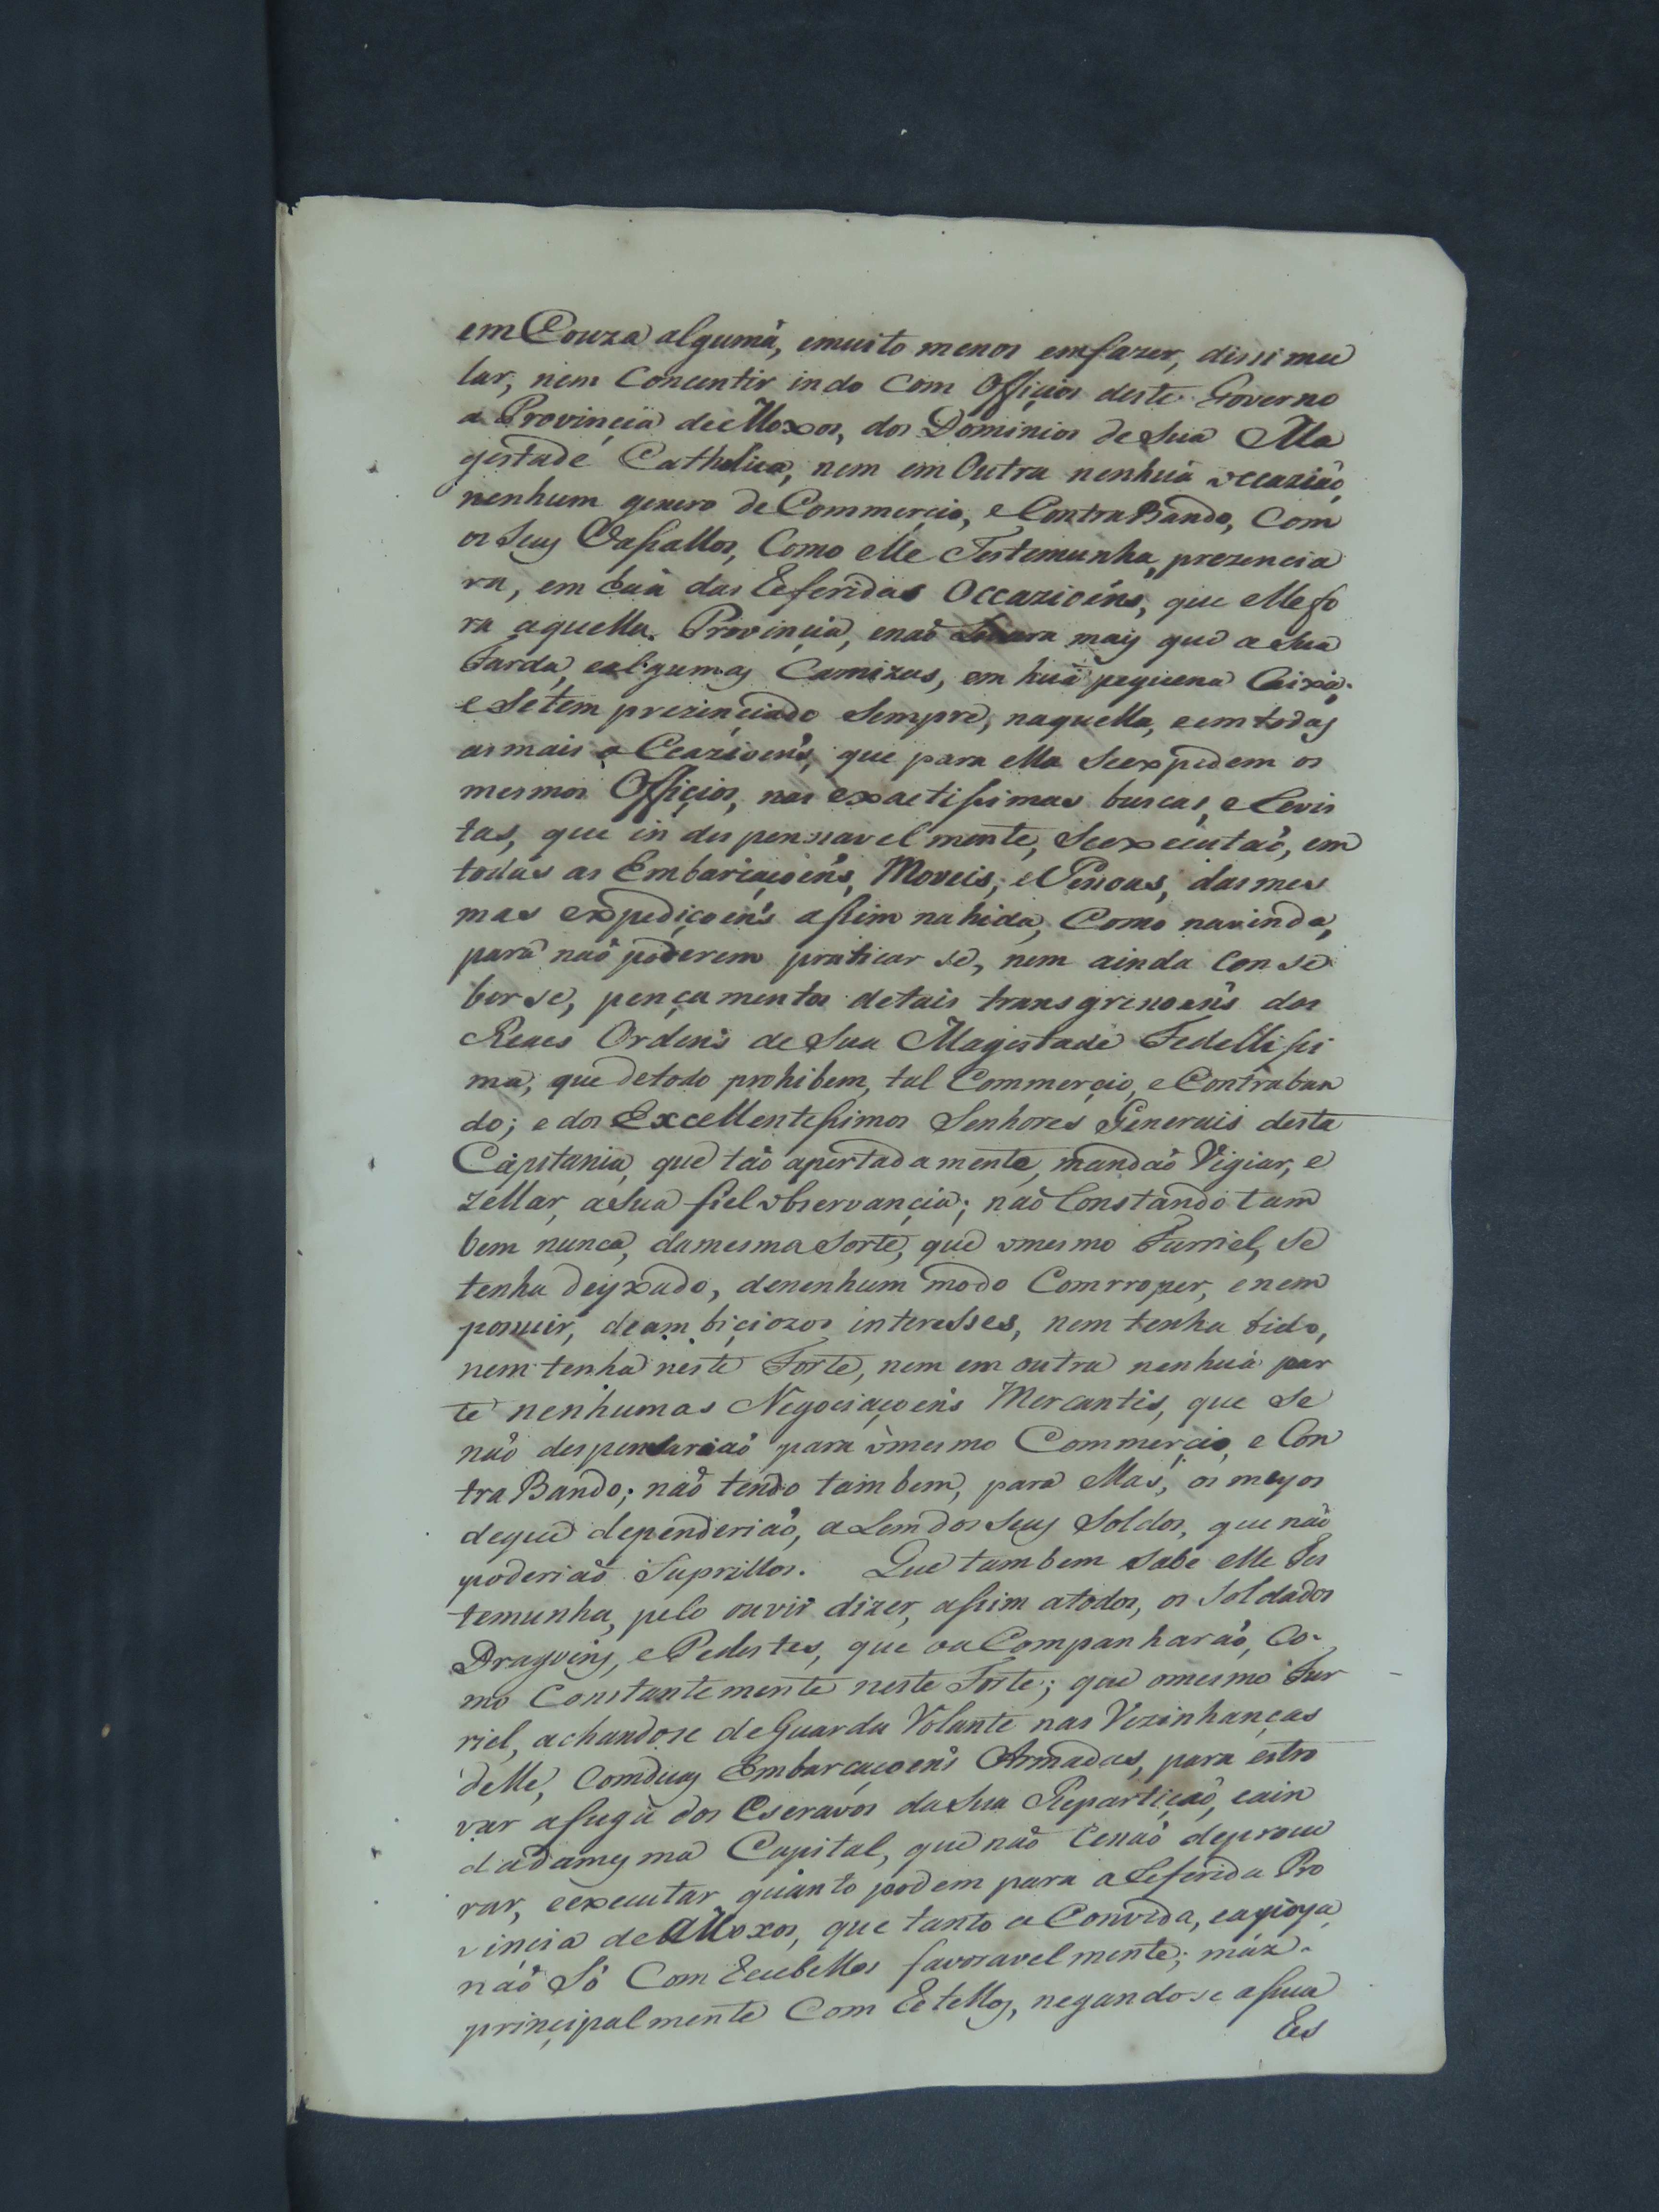 em Couza algumã, emuito menos emfazer, dissimu
lar, nem Concentir indo Com Offiçios deste Governo
a Provinçia de Moxos, dos Dominios de Sua Ma
gestade Catholica, nem em Outra nenhuã occazião,
nenhum genero de Commerçio, e ContraBando, Com
os Seus Vaſsallos, Como elle Testemunha, prezencia
ra, em huã das Referidas Occazioéns, que elle fo
ra aquella Provinçia, enaõ levara mais que a Sua
Farda, ealgumas Camizas, em huã pequena Caixa;
e Setem prezençiado Sempre, naquella, eemtodas
asmais oCcazioéns, que para ella Seexpedem os
mesmos Offiçios, nas exactiſsimas buscas, e Revis
tas, que indespensavelmente, Seexecutaõ, em
todas as Embarcaçoéns, Moveis, e Pessoas, dasmes
mas expediçoéns aſsim nahida, Como navinda,
para naõ poderem praticar se, nem ainda Conse
berse, pençamentos detais transgressoéns das
Reaes Ordens de Sua Magestade Fedelliſsi
ma, que detodo prohibem, tal Commerçio, e Contraban
do; e dos Excellenteſsimos Senhores Generais desta
Capitania, que taõ apertadamente, mandaõ Vigiar, e
zellar, aSua fiel observançia; naõ Constando tam
bem nunca, damesma Sorte, que omesmo Furriel, Se
tenha deyxado, denenhum modo Comrroper, enem
possuir, deambiçiozos interesses, nem tenha tido,
nem tenha neste Forte, nem em outra nenhuã par
te nenhumas Negociaçoéns Mercantis, que Se
naõ despensariaõ para omesmo Commerçio, e Con
traBando; naõ tendo tambem, para ellas, os meyos
deque dependeriaõ, aLem dos Seus Soldos, que naõ
poderiaõ Suprillos. Que tambem Sabe elle Tes
temunha, pelo ouvir dizer, aſsim atodos, os Soldados
Dragoens, e Pedestes, que oaCompanharaõ, Co-
mo Constantemente neste Forte; que omesmo Fur
riel, achandose deGuarda Volante nas Vezinhanças
delle, Comduas Embarcaçoens Armadas, para estro
var afuga dos Escravos daSua Repartiçaõ, eain
dadamesma Capital, que naõ Cessaõ deprocu
rar, eexecutar quanto podem para aReferida Pro
vincia de Moxos, que tanto os Convida, eapioya,
naõ Só Com Recebellos favoravelmente; máz
prinçipalmente Com Retellos, negandose aſsua
Res